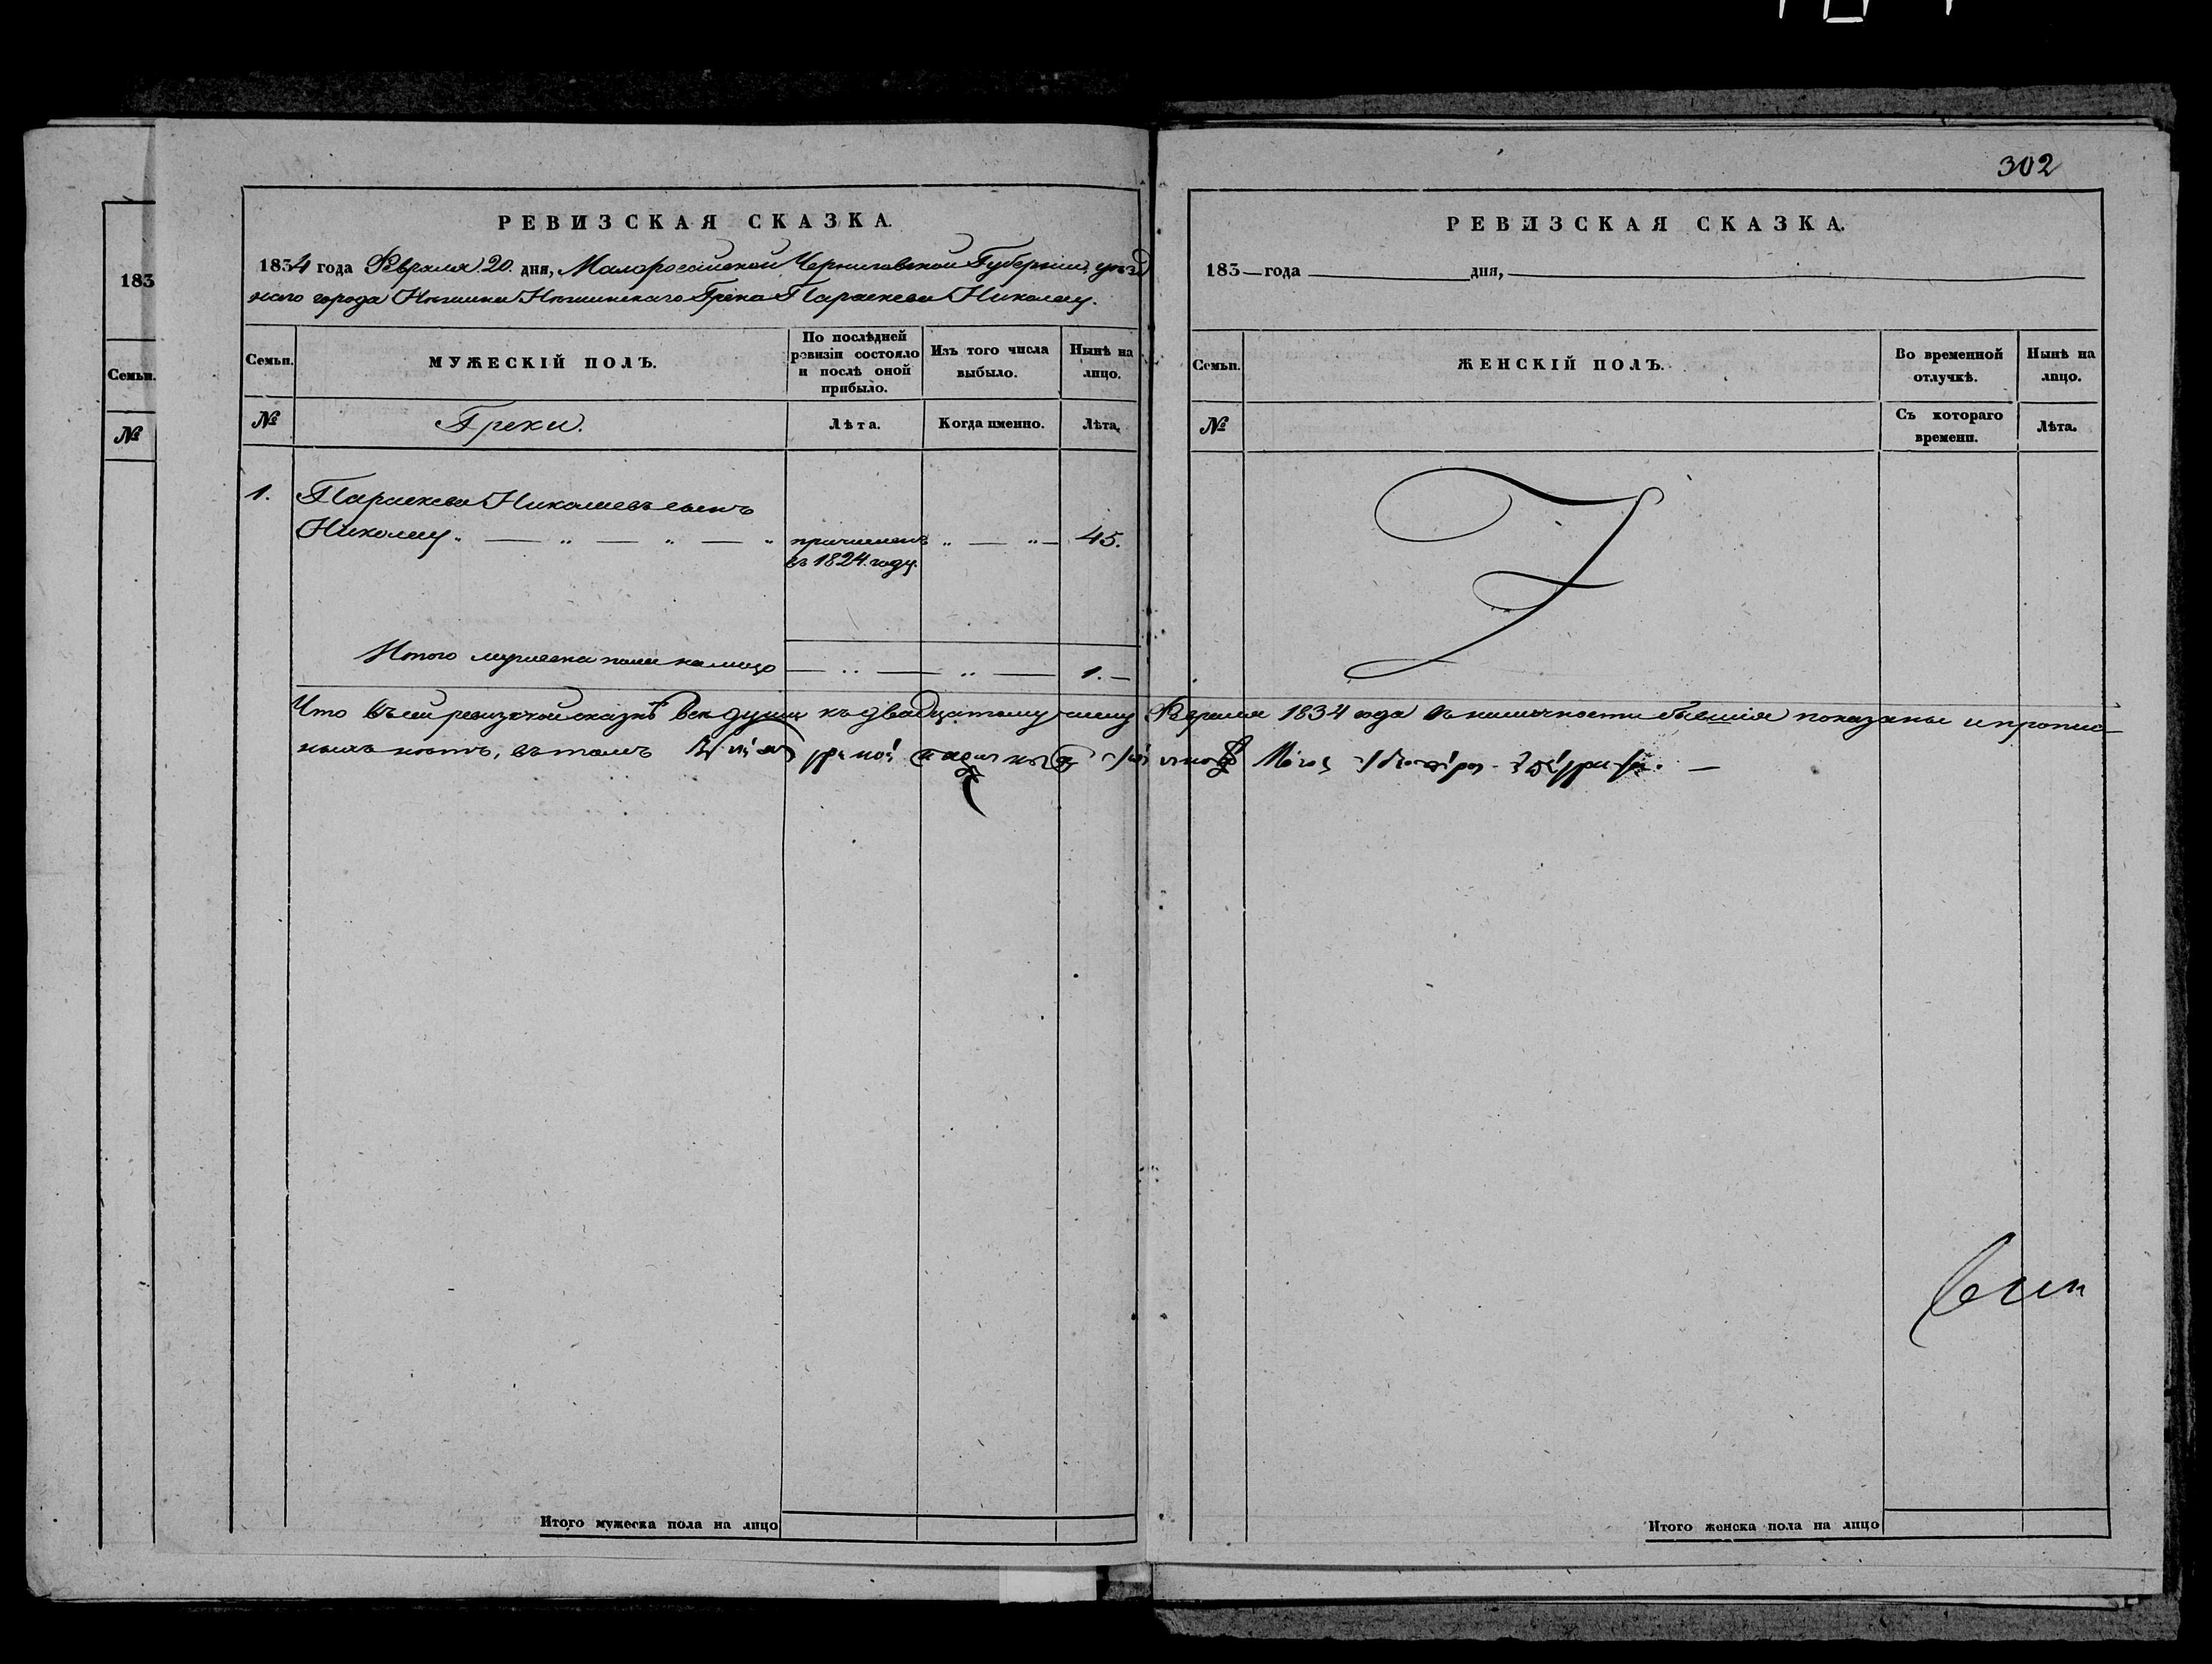 302
183
Семьи.
№
РЕВИЗСКАЯ СКАЗКА.
1834 года Февраля 20. дня, Малоросийской Черниговской Губернии, уѣзд
наго города Нѣжина Нѣжинскаго Грека Параскева Николау.
Семьи.
МУЖЕСКІЙ ПОЛЪ.
По послѣдней
ревизіи состояло
и послѣ оной
прибыло.
Изъ того числа
выбыло.
Нынѣ на
лицо.
№
Греки.
Лѣта.
Когда именно.
Лѣта.
1. Параскева Николаевъ сынъ
Николау. — „ — „ — „ причисленъ „ — „ — 45.
въ 1824. году.
Итого мужеска пола на лицо — „ — „ — 1. —
РЕВИЗСКАЯ СКАЗКА.
183 — года дня,
Семьи.
ЖЕНСКІЙ ПОЛЪ.
Во временной
отлучкѣ.
Нынѣ на
лицо.
№
Съ котораго
времени.
Лѣта.
Что въ сей ревизской сказкѣ всѣ души къ двадцатому числу Февраля 1834 года въ наличности бывшія показаны и пропис-
ныхъ нѣтъ, въ томъ
Итого мужеска пола на лицо
Итого женска пола на лицо